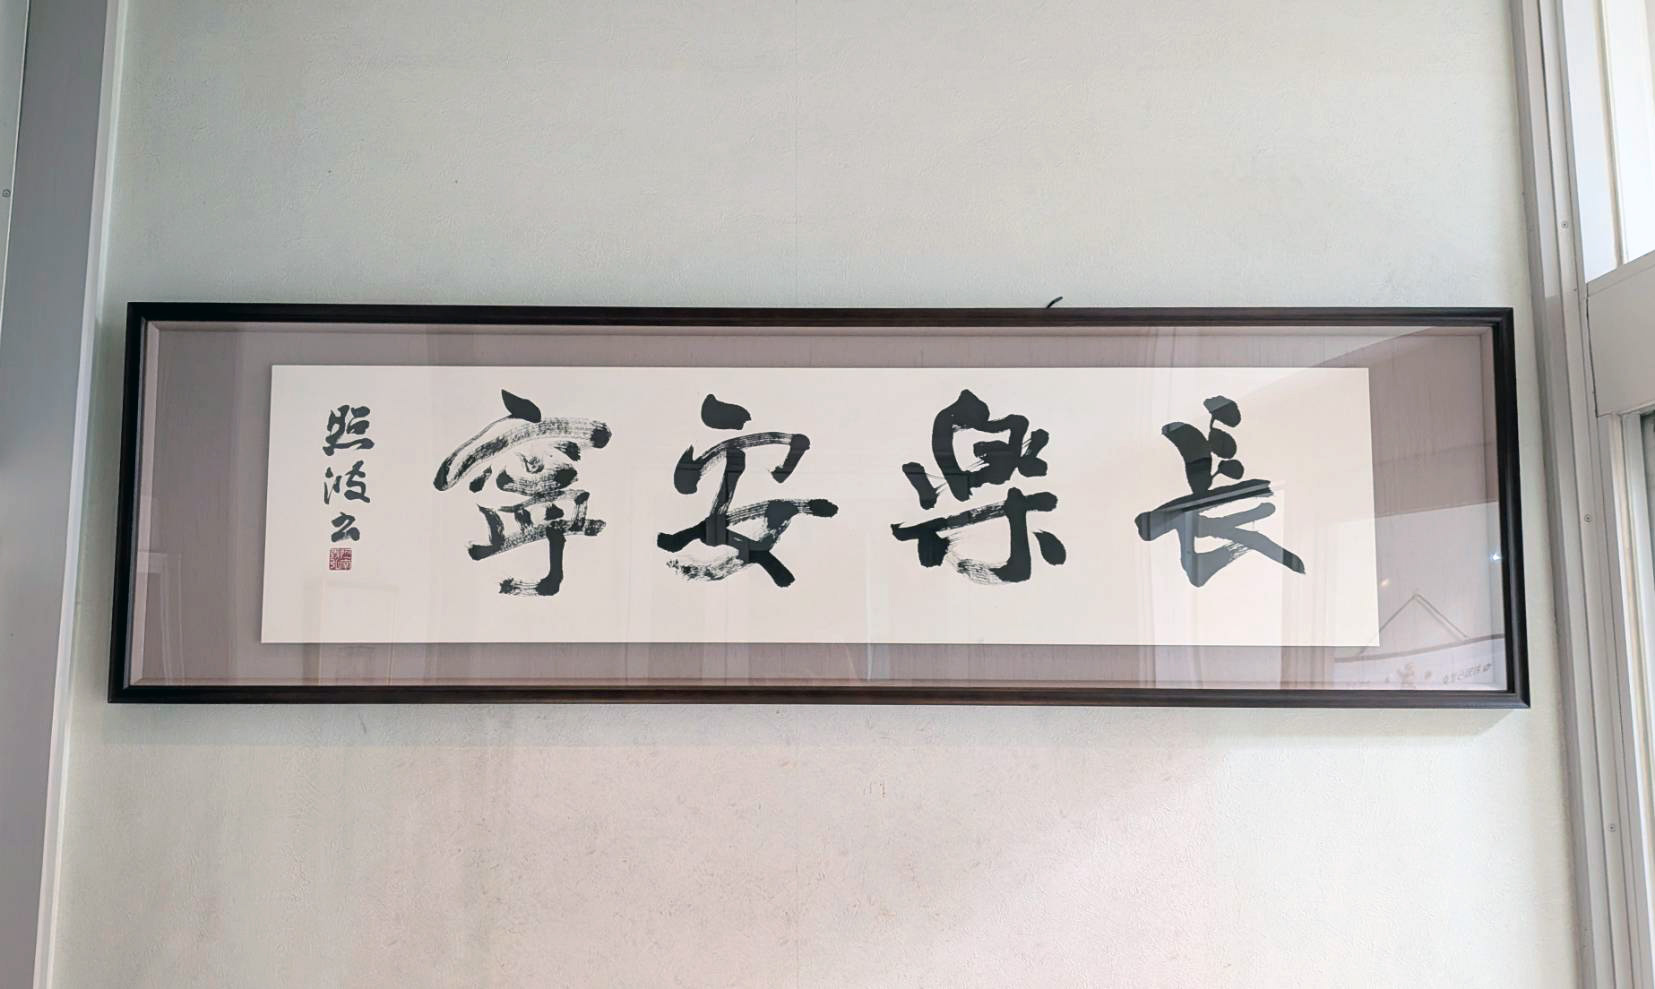 長樂安寧
照波書